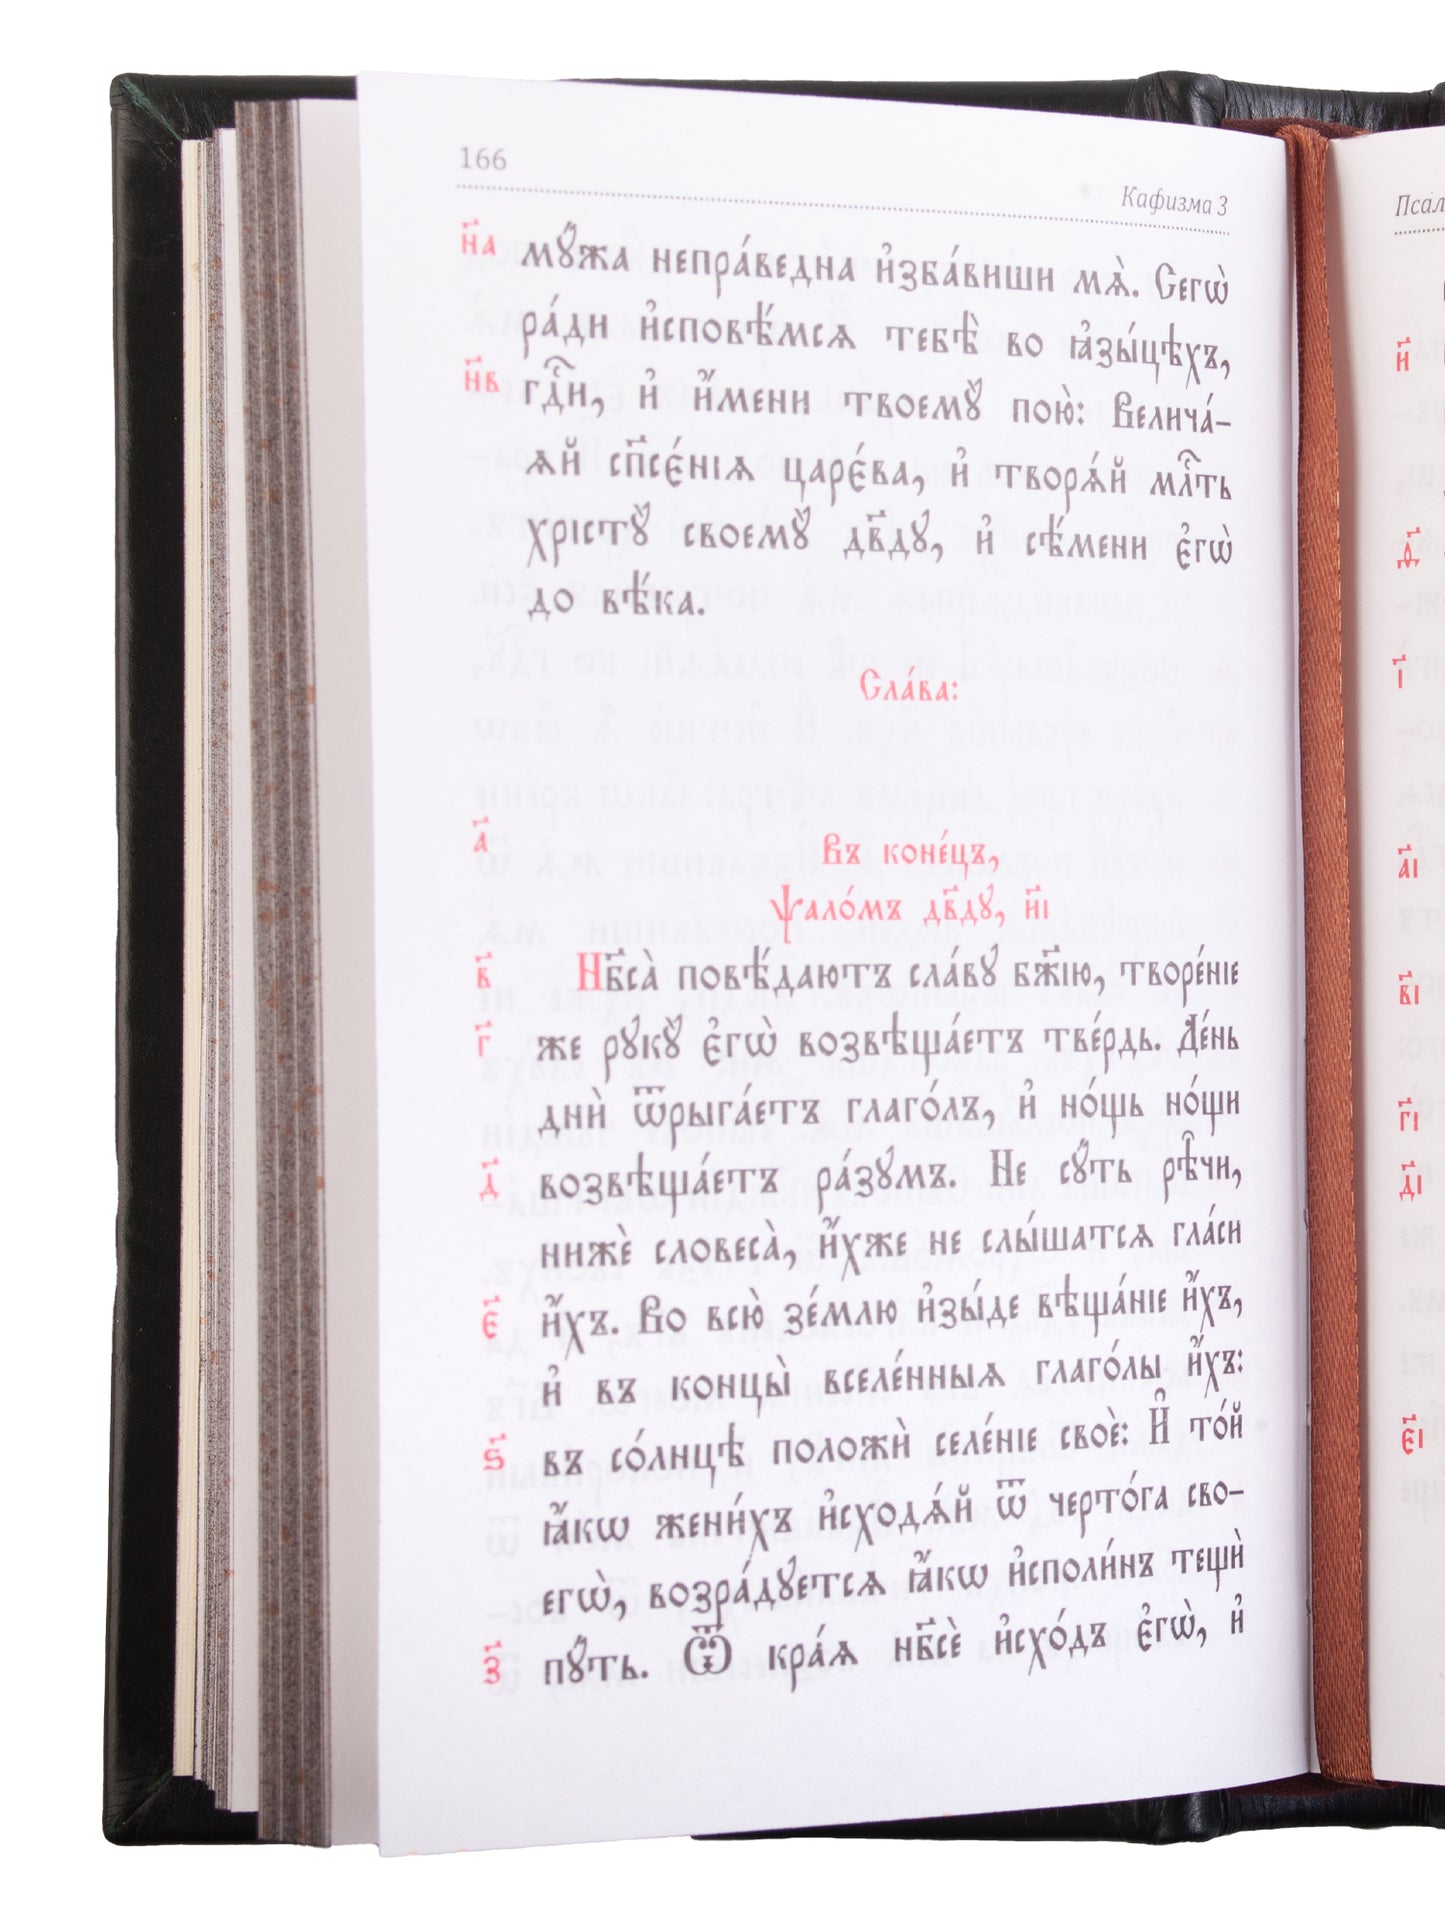 166
Кафизма 3
н҃а мꙋ́жа непра́ведна и҆зба́виши мѧ̀. Сегѡ̀
ра́ди и҆сповѣ́мсѧ тебѣ̀ во ꙗ҆зы́цѣхъ,
н҃в гдⷭ҇и, и҆ и҆́мени твоемꙋ̀ пою̀: Велича́-
ѧй сп҃се́нїѧ царе́ва, и҆ творѧ́й млⷭ҇ть
хрїстꙋ̀ своемꙋ̀ дв҃дꙋ, и҆ сѣ́мени є҆гѡ̀
до вѣ́ка.
Сла́ва:
а҃ Въ коне́цъ,
ѱало́мъ дв҃дꙋ, и҃і
в҃ Нб҃са̀ повѣ́даютъ сла́вꙋ бж҃їю, творе́нїе
г҃ же рꙋкꙋ̀ є҆гѡ̀ возвѣща́етъ тве́рдь. Де́нь
днѝ ѿрыга́етъ глаго́лъ, и҆ но́щь но́щи
д҃ возвѣща́етъ ра́зꙋмъ. Не сꙋ́ть рѣ̑чи,
нижѐ словеса̀, и҆́хже не слы́шатсѧ гла́си
є҃ и҆́хъ. Во всю̀ зе́млю и҆зы́де вѣща́нїе и҆́хъ,
и҆ въ концы̀ вселе́нныѧ глаго́лы и҆́хъ:
ѕ҃ въ со́лнцѣ положѝ селе́нїе своѐ: И҆ то́й
ꙗ҆́кѡ жени́хъ и҆сходѧ́й ѿ черто́га сво-
егѡ̀, возра́дꙋетсѧ ꙗ҆́кѡ и҆споли́нъ тещѝ
з҃ пꙋ́ть. Ѿ кра́ѧ нб҃сѐ и҆схо́дъ є҆гѡ̀, и҆
Псал
и҃
ѳ҃
і҃
а҃і
в҃і
г҃і
д҃і
є҃і